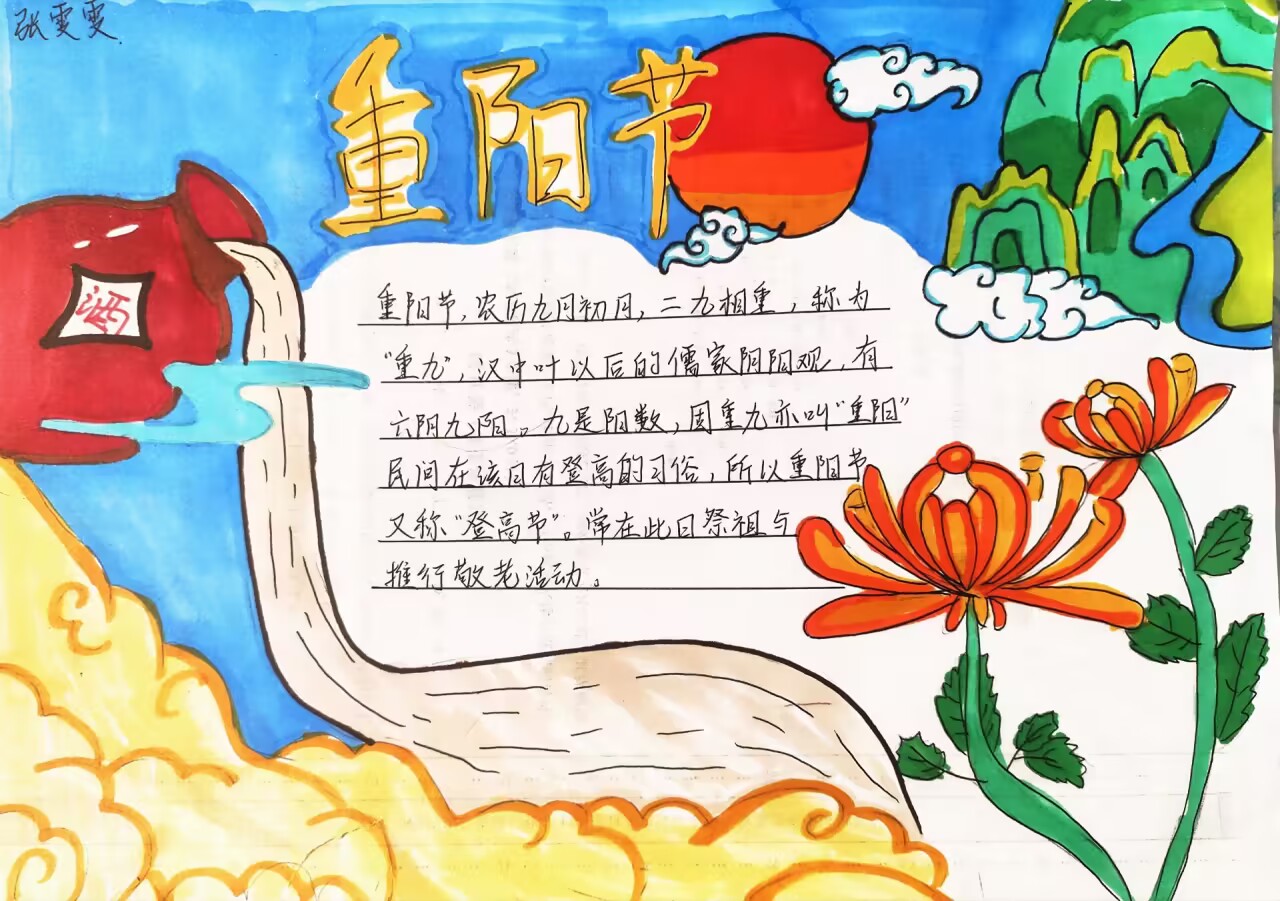 张雯雯
重阳节
酒
重阳节,农历九月初月,二九相重,称为
“重九”,汉中叶以后的儒家阴阳观,有
六阴九阳。九是阳数,固重九亦叫“重阳”
民间在该日有登高的习俗,所以重阳节
又称“登高节”。常在此日祭祖与
推行敬老活动。